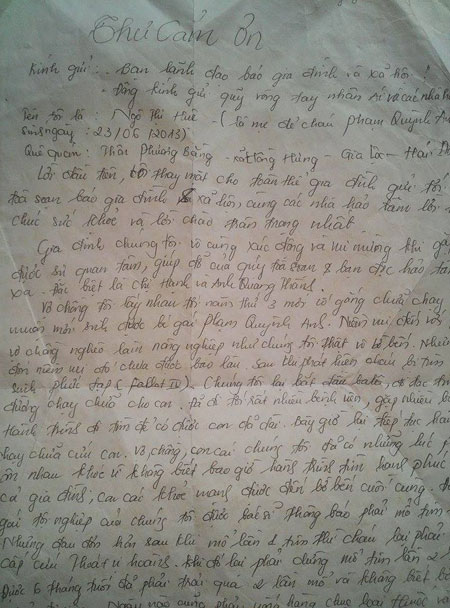 Thư Cảm Ơn
Kính gửi : - Ban lãnh đạo báo gia đình và xã hội !
- Đồng kính gửi quỹ vòng tay nhân Ái và các nhà hả
Tên tôi là : Ngô Thị Huế - ( là mẹ đẻ cháu phạm Quỳnh An
sinh ngày : 23/06/2013)
Quê quán : Thôn Phương Bằng - xã Hồng Hưng - Gia Lộc - Hải D
Lời đầu tiên, tôi thay mặt cho toàn thể gia đình gửi tới
toà soạn báo gia đình & xã hội, cùng các nhà hảo tâm lời
chúc sức khoẻ và lời chào trân trọng nhất.
Gia đình chúng tôi vô cùng xúc động và vui mừng khi
được sự quan tâm, giúp đỡ của quý toà soạn & bạn đọc hảo tâ
xa. Đặc biệt là chị Hạnh và Anh Quang Thành.
Vợ chồng tôi lấy nhau tới năm thứ 3 mới cố gắng chữa chạy
muộn mới sinh được bé gái phạm Quỳnh Anh. Niềm vui đến với
vợ chồng nghèo làm nông nghiệp như chúng tôi thật vô bờ bến. Nhưn
đón niềm vui đó chưa được bao lâu sau khi phát hiện cháu bị tim
sinh phức tạp ( Fallot IV). Chúng tôi lại bắt đầu để đọc tìm
đường chạy chữa cho con. đã đi tới rất nhiều bệnh viện, gặp nhiều b
hành trình đi tìm để có được con đã dài. Bây giờ lại tiếp tục hàn
chạy chữa cứu con. Vợ, chồng, con cái chúng tôi đã có những lúc
ôm nhau khóc vì không biết bao giờ hành trình tìm hạnh phúc
cả gia đình, con cái khoẻ mạnh được đến bờ bến cuối cùng.
gái tội nghiệp của chúng tôi được bác sĩ thông báo phải mổ tim
Những đau đớn hơn sau khi mổ lần 1 tim thì cháu lại phải
cấp cứu thoát vị hoành. khi đó lại phải dừng mổ tim lần 2
Được 6 tháng tuổi đã phải trải qua 2 lần mổ và không biết b